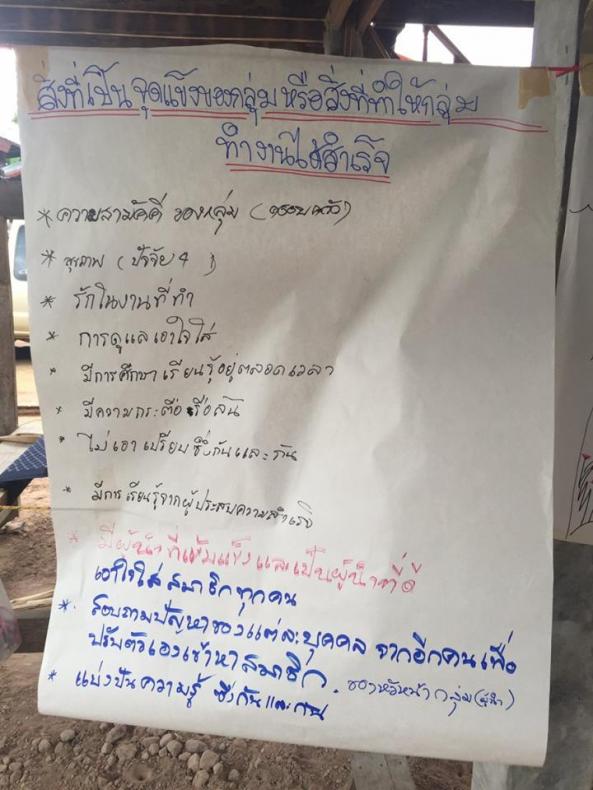 สิ่งที่เป็นจุดแข็งของกลุ่ม หรือสิ่งที่ทำให้กลุ่ม
ทำงานได้สำเร็จ
* ความสามัคคี ของกลุ่ม (ครอบครัว)
* สุขภาพ (ปัจจัย 4)
* รักในงานที่ทำ
* การดูแลเอาใจใส่
* มีการศึกษาเรียนรู้อยู่ตลอดเวลา
* มีความกระตือรือล้น
* ไม่เอาเปรียบซึ่งกันและกัน
* มีการเรียนรู้จากผู้ประสบความสำเร็จ
* มีผู้นำที่เข้มแข็งและเป็นผู้นำที่ดี
เอาใจใส่สมาชิกทุกคน
* สอบถามปัญหาของแต่ละบุคคล จากอีกคนเพื่อ
ปรับตัวเองเข้าหาสมาชิก. ของหัวหน้ากลุ่ม(ผู้นำ)
* แบ่งปันความรู้ ซึ่งกันและกัน